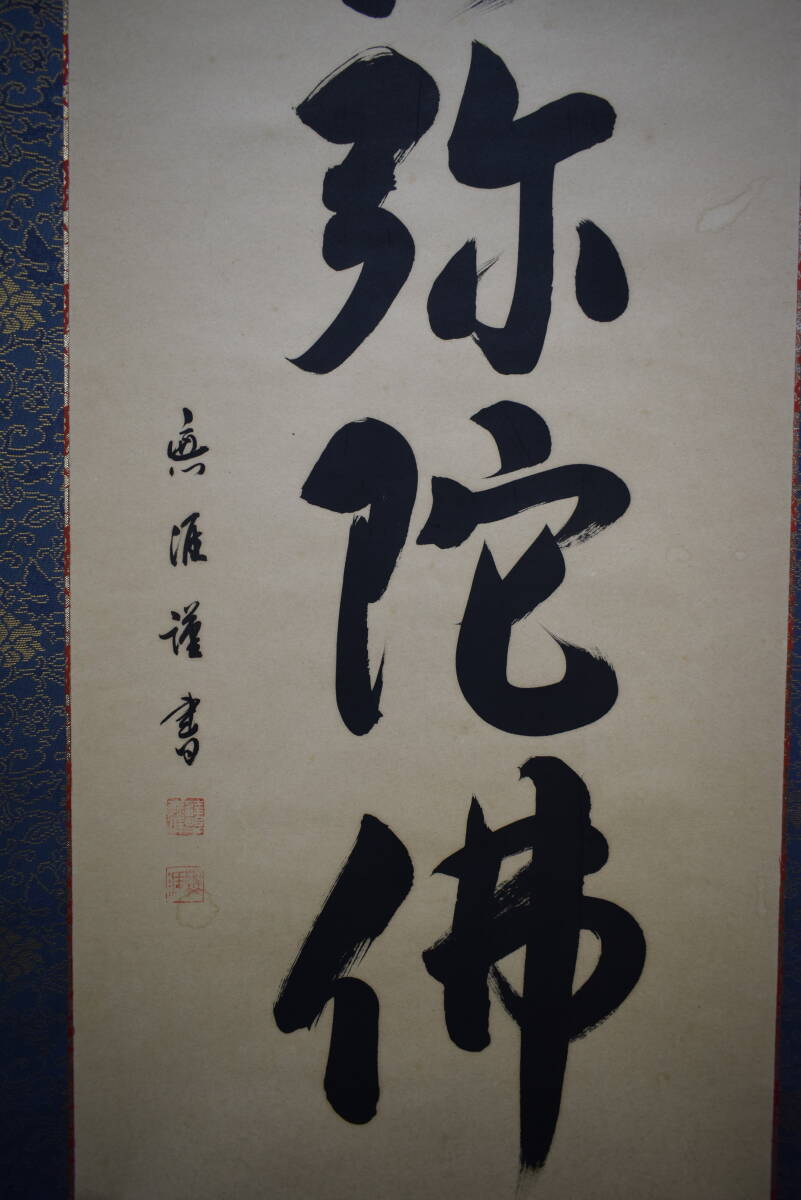 弥陀佛
無涯謹書